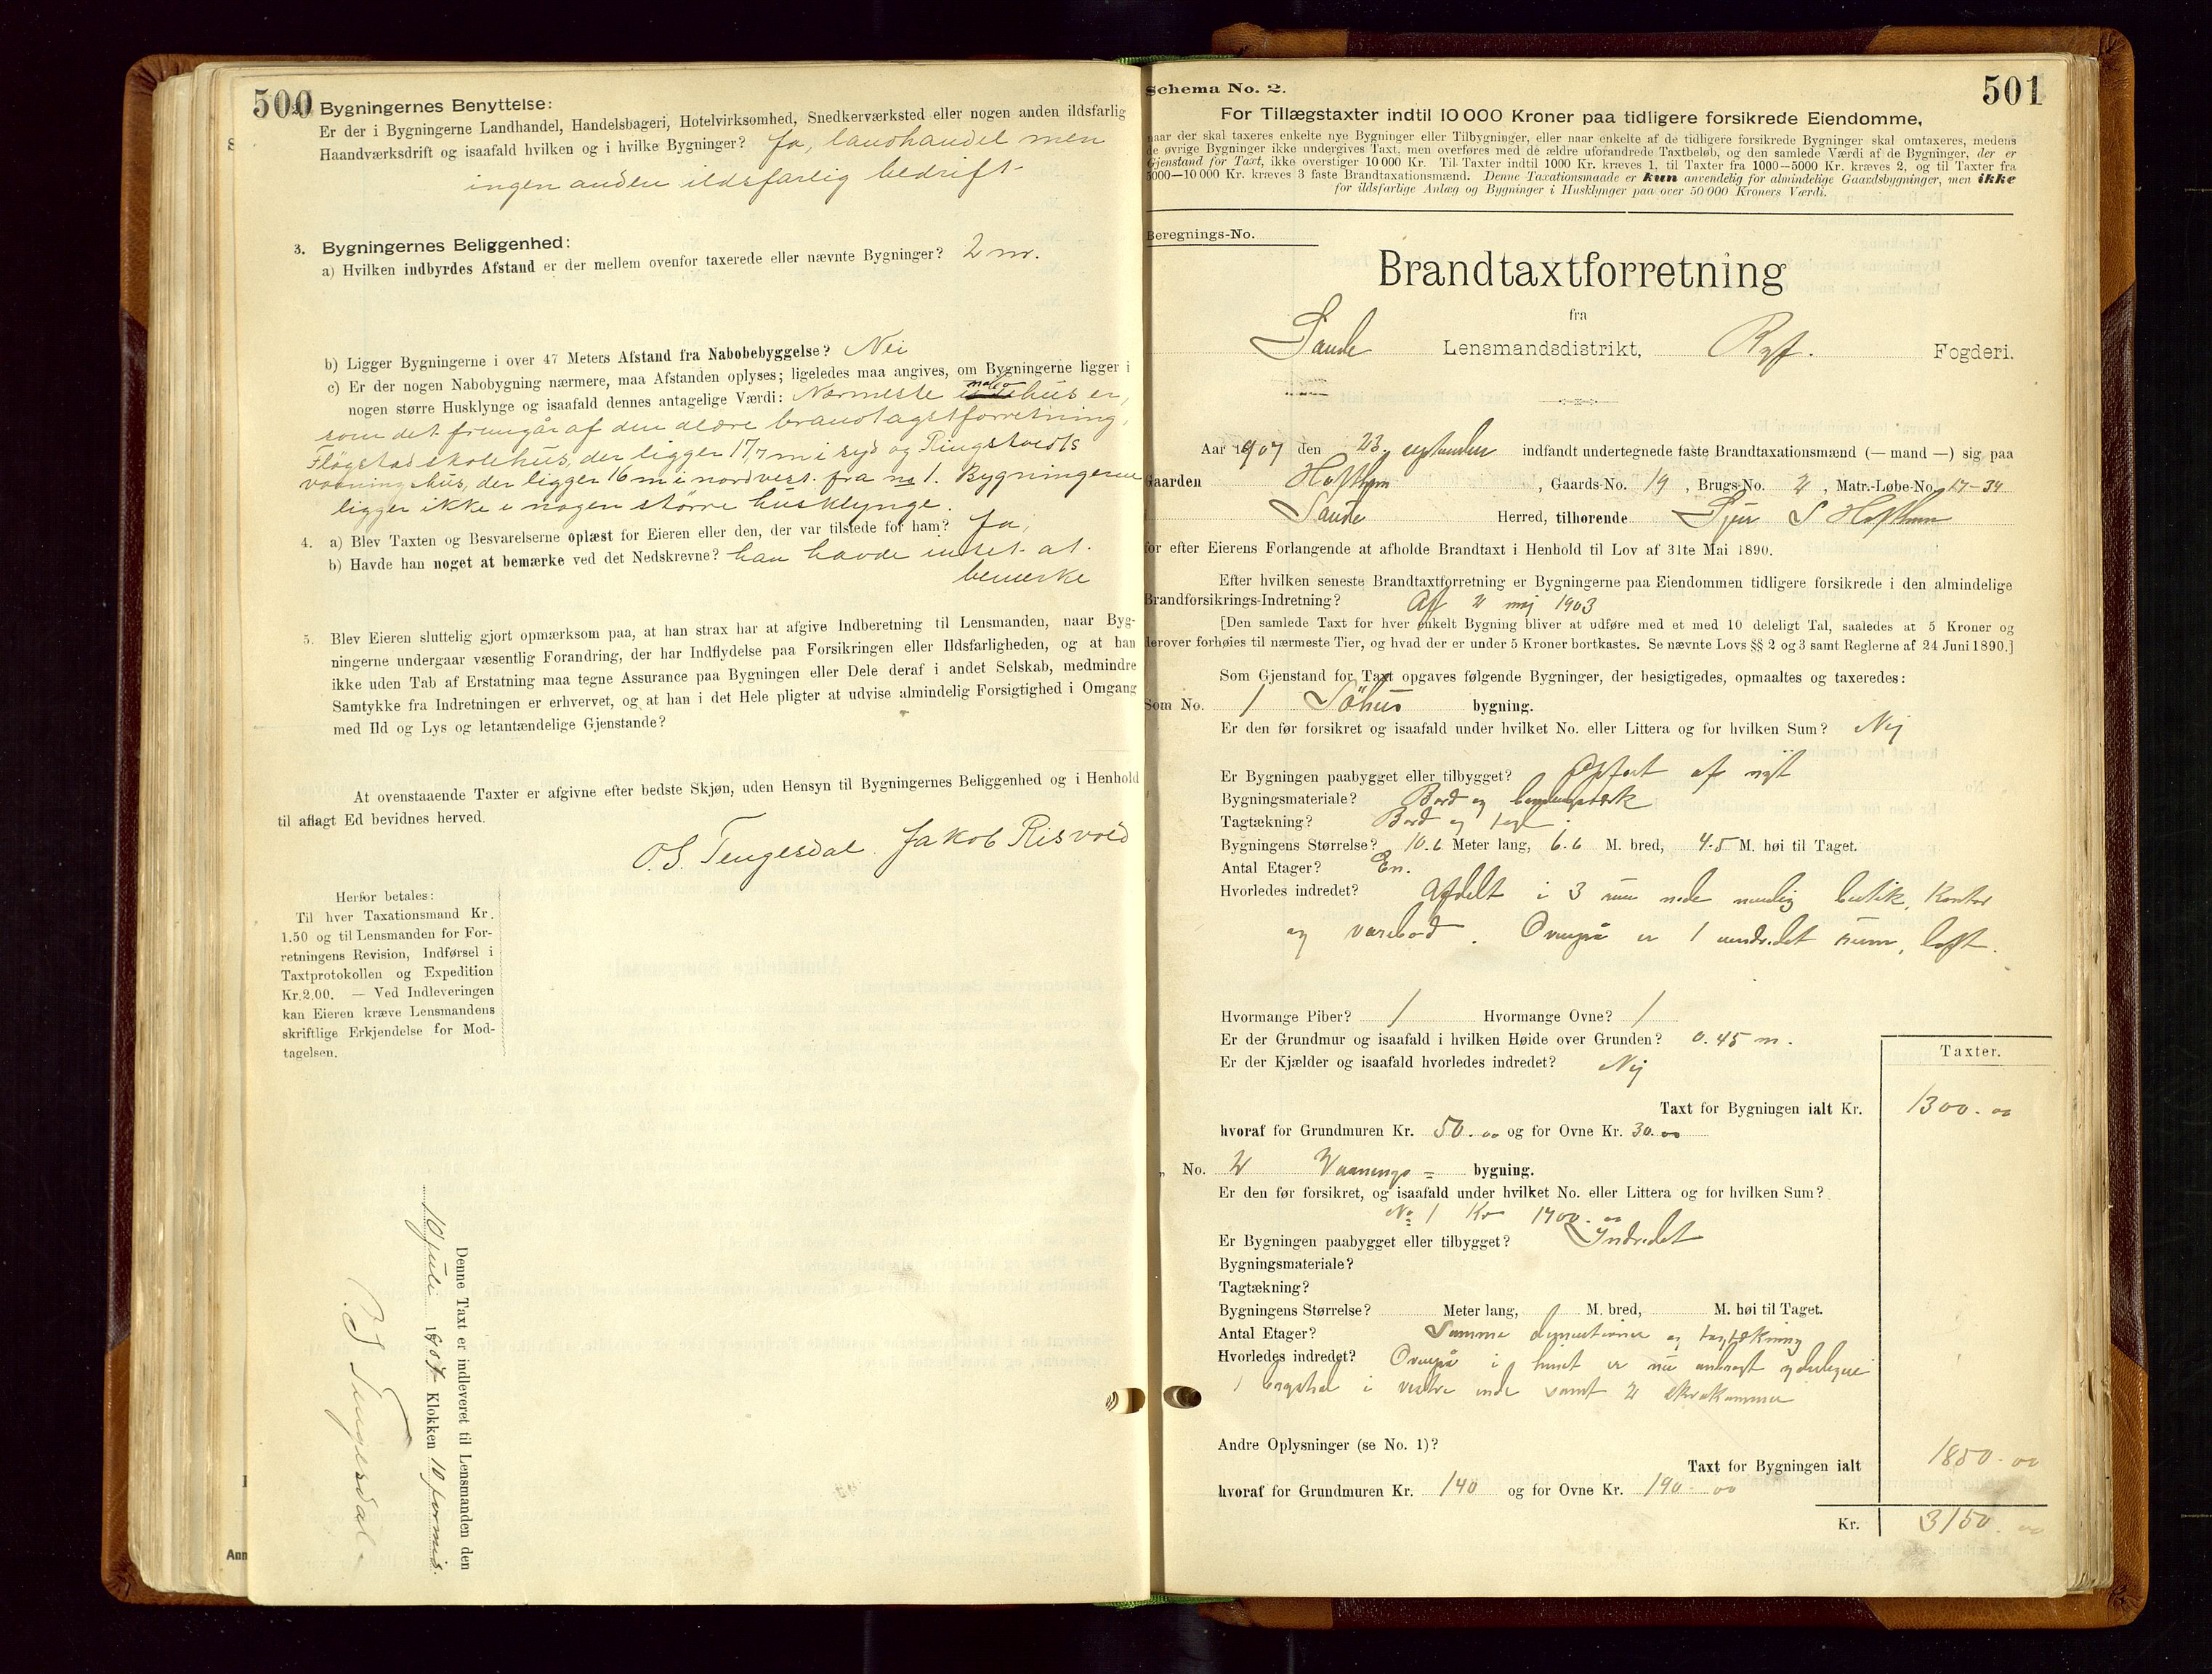 500
2. Bygningernes Benyttelse:
Er der i Bygningerne Landhandel, Handelsbageri, Hotelvirksomhed, Snedkerværksted eller nogen anden ildsfarlig
Haandværksdrift og isaafald hvilken og i hvilke Bygninger? Ja, landhandel men
ingen anden ildsfarlig bedrift
3. Bygningernes Beliggenhed:
a) Hvilken indbyrdes Afstand er der mellem ovenfor taxerede eller nævnte Bygninger? 2 m.
b) Ligger Bygningerne i over 47 Meters Afstand fra Nabobebyggelse? Nei
c) Er der nogen Nabobygning nærmere, maa Afstanden oplyses; ligeledes maa angives, om Bygningerne ligger i
nogen større Husklynge og isaafald dennes antagelige Værdi: Nærmeste nabohus er,
som det fremgår af den ældre brandtagstforretning,
Fløgstad skolehus, der ligger 17,7 m i syd og Ringstvedts
vaaningshus, der ligger 16 m i nordvest fra no 1. Bygningerne
ligger ikke i nogen större husklynge.
4. a) Blev Taxten og Besvarelserne oplæst for Eieren eller den, der var tilstede for ham? Ja,
b) Havde han noget at bemærke ved det Nedskrevne? han havde intet at
bemerke
5. Blev Eieren sluttelig gjort opmærksom paa, at han strax har at afgive Indberetning til Lensmanden, naar Byg-
ningerne undergaar væsentlig Forandring, der har Indflydelse paa Forsikringen eller Ildsfarligheden, og at han
ikke uden Tab af Erstatning maa tegne Assurance paa Bygningen eller Dele deraf i andet Selskab, medmindre
Samtykke fra Indretningen er erhvervet, og at han i det Hele pligter at udvise almindelig Forsigtighed i Omgang
med Ild og Lys og letantændelige Gjenstande?
At ovenstaaende Taxter er afgivne efter bedste Skjøn, uden Hensyn til Bygningernes Beliggenhed og i Henhold
til aflagt Ed bevidnes herved.
O. S. Tengesdal Jakob Risvold
Herfor betales:
Til hver Taxationsmand Kr.
1.50 og til Lensmanden for For-
retningens Revision, Indførsel i
Taxtprotokollen og Expedition
Kr. 2.00. — Ved Indleveringen
kan Eieren kræve Lensmandens
skriftlige Erkjendelse for Mod-
tagelsen.
Denne Taxt er indleveret til Lensmanden den
10 juli 1907 Klokken 10 formid.
Tengesdal
Schema No. 2.
501
For Tillægstaxter indtil 10 000 Kroner paa tidligere forsikrede Eiendomme,
naar der skal taxeres enkelte nye Bygninger eller Tilbygninger, eller naar enkelte af de tidligere forsikrede Bygninger skal omtaxeres, medens
de øvrige Bygninger ikke undergives Taxt, men overføres med de ældre uforandrede Taxtbeløb, og den samlede Værdi af de Bygninger, der er
Gjenstand for Taxt, ikke overstiger 10 000 Kr. Til Taxter indtil 1000 Kr. kræves 1, til Taxter fra 1000—5000 Kr. kræves 2, og til Taxter fra
5000—10 000 Kr. kræves 3 faste Brandtaxationsmænd. Denne Taxationsmaade er kun anvendelig for almindelige Gaardsbygninger, men ikke
for ildsfarlige Anlæg og Bygninger i Husklynger paa over 50 000 Kroners Værdi.
Beregnings-No.
Brandtaxtforretning
fra
Saude Lensmandsdistrikt, Ryf. Fogderi.
Aar 1907 den 23. september indfandt undertegnede faste Brandtaxationsmænd (— mand —) sig paa
Gaarden Hofthun, Gaards-No. 19, Brugs-No. 2, Matr.-Løbe-No. 17-34
Saude Herred, tilhørende Sjur S Hofthun
for efter Eierens Forlangende at afholde Brandtaxt i Henhold til Lov af 31te Mai 1890.
Efter hvilken seneste Brandtaxtforretning er Bygningerne paa Eiendommen tidligere forsikrede i den almindelige
Brandforsikrings-Indretning? Af 2 mej 1903
[Den samlede Taxt for hver enkelt Bygning bliver at udføre med et med 10 deleligt Tal, saaledes at 5 Kroner og
derover forhøies til nærmeste Tier, og hvad der er under 5 Kroner bortkastes. Se nævnte Lovs §§ 2 og 3 samt Reglerne af 24 Juni 1890.]
Som Gjenstand for Taxt opgaves følgende Bygninger, der besigtigedes, opmaaltes og taxeredes:
Som No. 1 Söhus bygning.
Er den før forsikret og isaafald under hvilket No. eller Littera og for hvilken Sum? Nej
Er Bygningen paabygget eller tilbygget? Opført af nyt
Bygningsmateriale? Bord og bindingsverk
Tagtækning? Bord og tegl.
Bygningens Størrelse? 10.6 Meter lang, 6.6 M. bred, 4.5 M. høi til Taget.
Antal Etager? En.
Hvorledes indredet? Afdelt i 3 rum nede nemlig butik, Kontor
og varebod. Ovenpå er 1 uindredet rum, loft.
Hvormange Piber? 1 Hvormange Ovne? 1
Er der Grundmur og isaafald i hvilken Høide over Grunden? 0.45 m.
Er der Kjælder og isaafald hvorledes indredet? Nej
Taxter.
Taxt for Bygningen ialt Kr. 1300.00
hvoraf for Grundmuren Kr. 50.00 og for Ovne Kr. 30.00
„ No. 2 Vaanings= bygning.
Er den før forsikret, og isaafald under hvilket No. eller Littera og for hvilken Sum?
No 1 Kr 1700.00
Er Bygningen paabygget eller tilbygget? Indredet
Bygningsmateriale?
Tagtækning?
Bygningens Størrelse? Meter lang, M. bred, M. høi til Taget.
Antal Etager? Samme dimensioner og tagtækning
Hvorledes indredet? Ovenpå i huset er nu anbragt yderligere
1 i vestre ende samt 2 skråkammer
Andre Oplysninger (se No. 1)?
Taxt for Bygningen ialt 1850.00
hvoraf for Grundmuren Kr. 140 og for Ovne Kr. 190.00
Kr. 3150.00